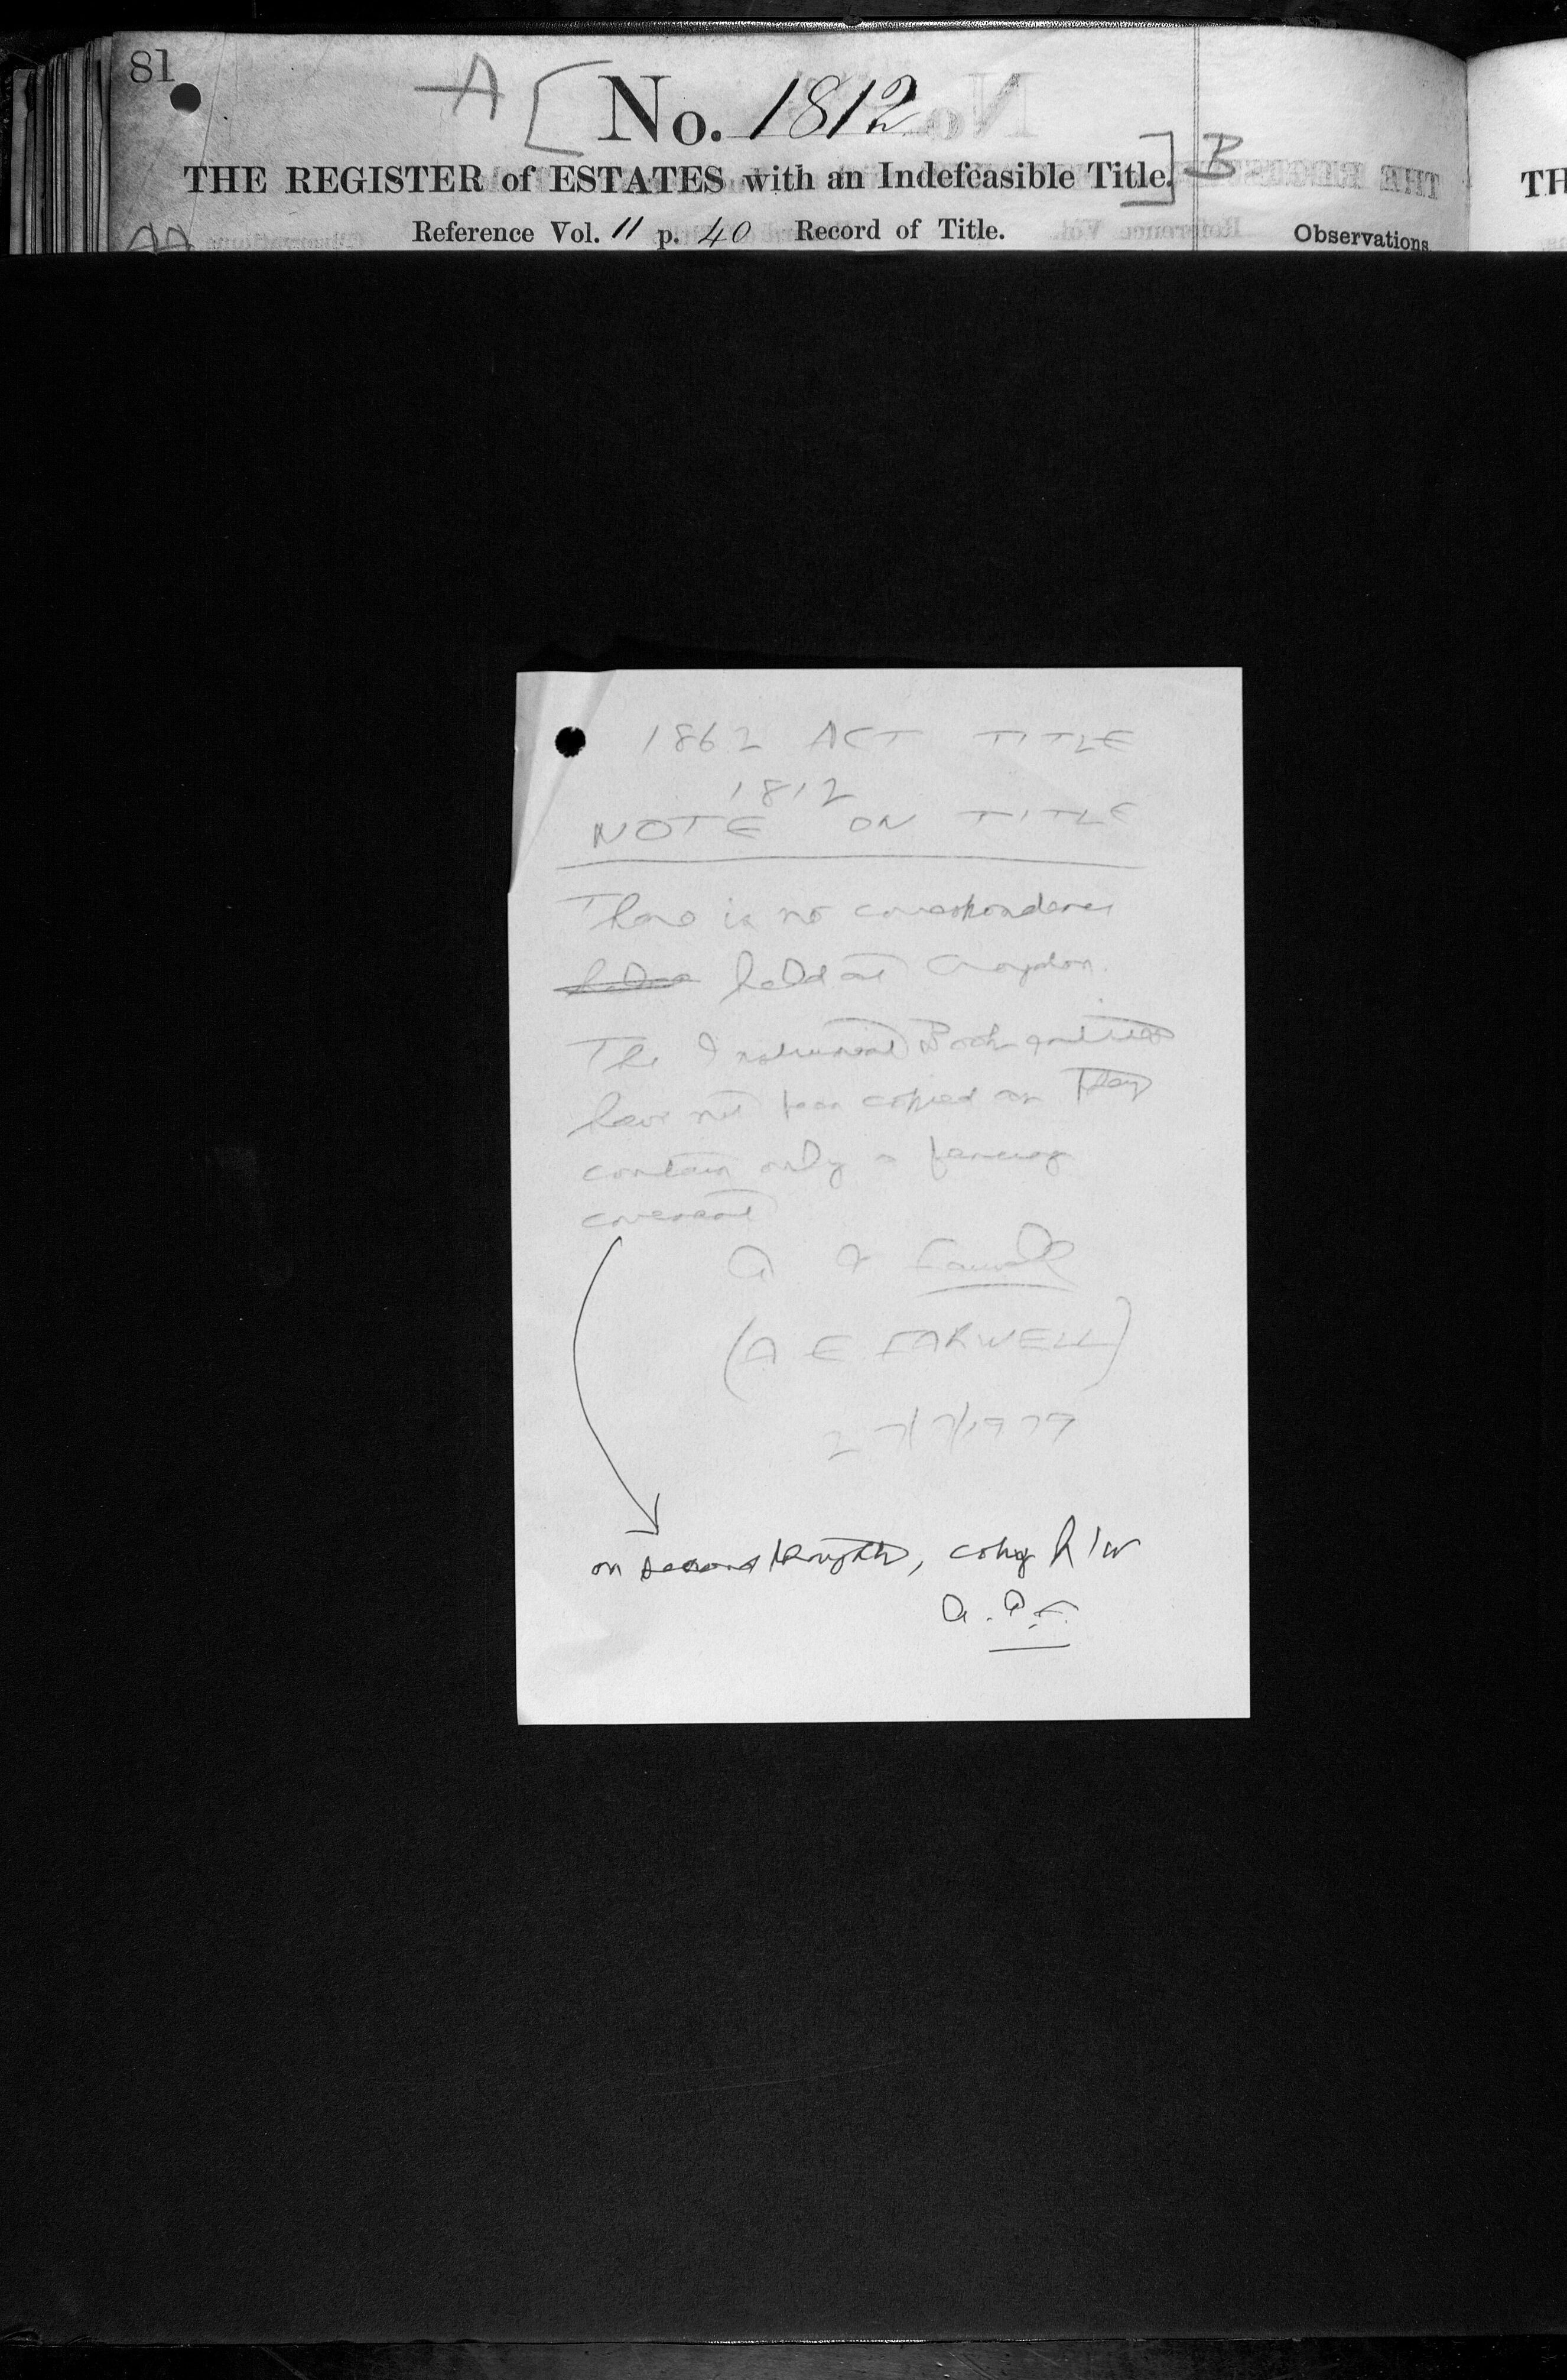 81
A [ No. 1812
THE REGISTER of ESTATES with an Indefeasible Title. ] B
Reference Vol. 11 p. 40 Record of Title.
Observations
TH
AA
1862 ACT TITLE
1812
NOTE ON TITLE
There is no correspondence
held at Croydon.
The Instrument Book entries
have not been copied as they
contain only a fencing
covenant
A E Farwell
(A E FARWELL)
27/7/1979
on second thoughts, copy h/w
A. E. F.